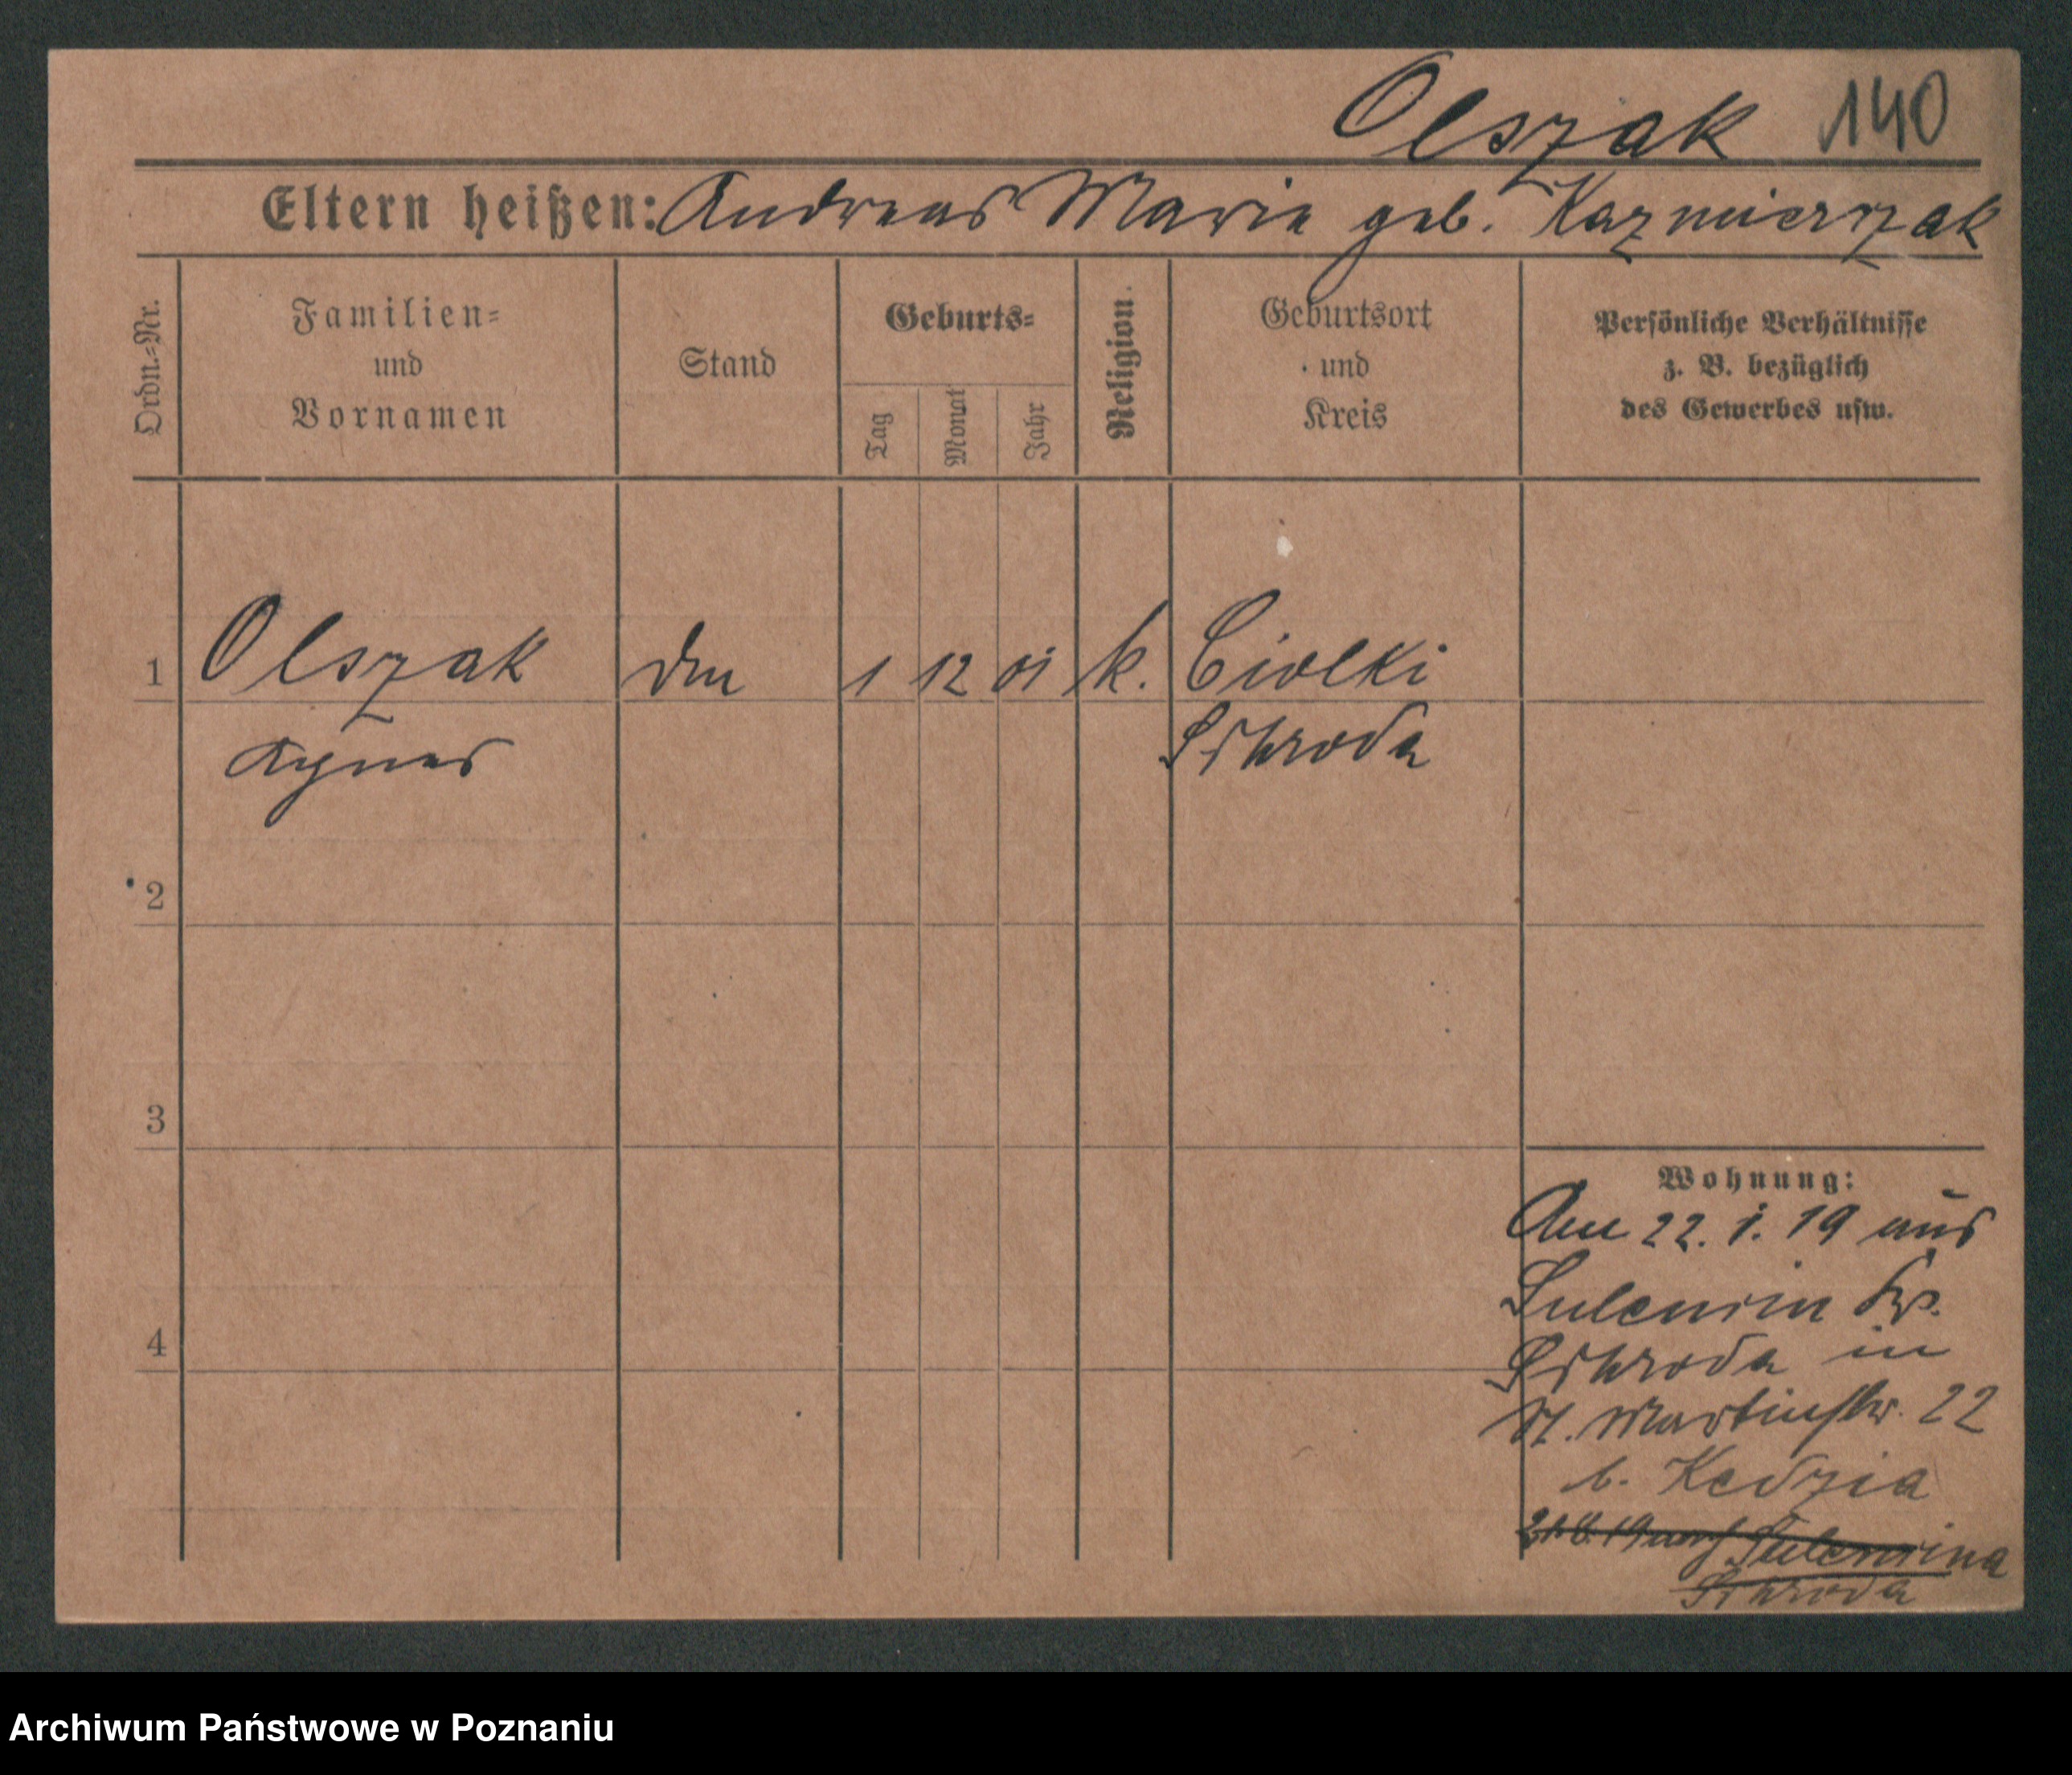 Olszak 140
Eltern heißen: Andreas Marie geb. Kazmierzak
Ordn.=Nr.
Familien=
und
Vornamen
Stand
Geburts=
Tag
Monat
Jahr
Religion.
Geburtsort
und
Kreis
Persönliche Verhältnisse
z. B. bezüglich
des Gewerbes usw.
1 Olszak 1 12 01 k. Ciolki
Agnes Schroda
2
3
4
Wohnung:
Am 22. 1. 19 aus
Sulencin Kr.
Schroda in
St. Martinstr. 22
b. Kedzia
19 nach Sulencina
Schroda
Archiwum Państwowe w Poznaniu